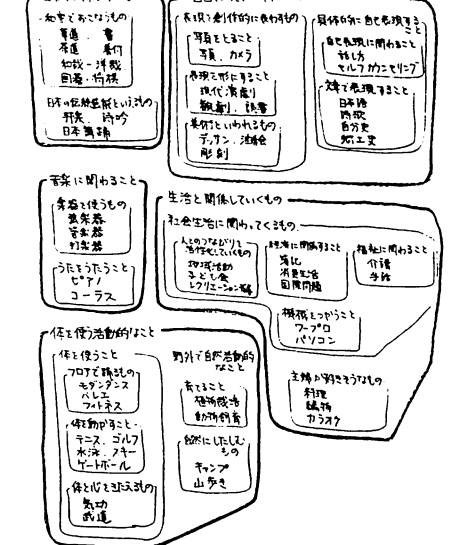 和室でおこなうもの
華道・書
茶道・着付
和裁・洋裁
囲碁・将棋
日本の伝統芸能というもの
詩吟
日本舞踊
表現を創作的に表わすもの
写真をとること
写真、カメラ
表現を形にすること
現代演劇
観劇、読書
芸術といわれるもの
デッサン、油絵
彫刻
具体的に自己表現する
こと
自己表現に関わること
話し方
セルフカウンセリング
文章で表現すること
日本語
詩歌
自分史
郷土史
音楽に関わること
楽器を使うもの
弦楽器
管楽器
打楽器
うたをうたうこと
ピアノ
コーラス
生活と関係していくもの
社会生活に関わってくるもの
人とのつながりを
活性化していくもの
地域活動
子ども会
レクリエーション
経済に関係すること
簿記
消費生活
国際問題
福祉に関わること
介護
手話
機械をつかうこと
ワープロ
パソコン
主婦が好きそうなもの
料理
編物
カラオケ
体を使う活動的なこと
体を使うこと
フロアで踊るもの
モダンダンス
バレエ
フィットネス
体を動かすこと
テニス、ゴルフ
水泳、スキー
ゲートボール
体と心をきたえるもの
気功
武道
野外で自然活動的
なこと
育てること
植物栽培
動物飼育
自然にしたしむ
もの
キャンプ
山歩き